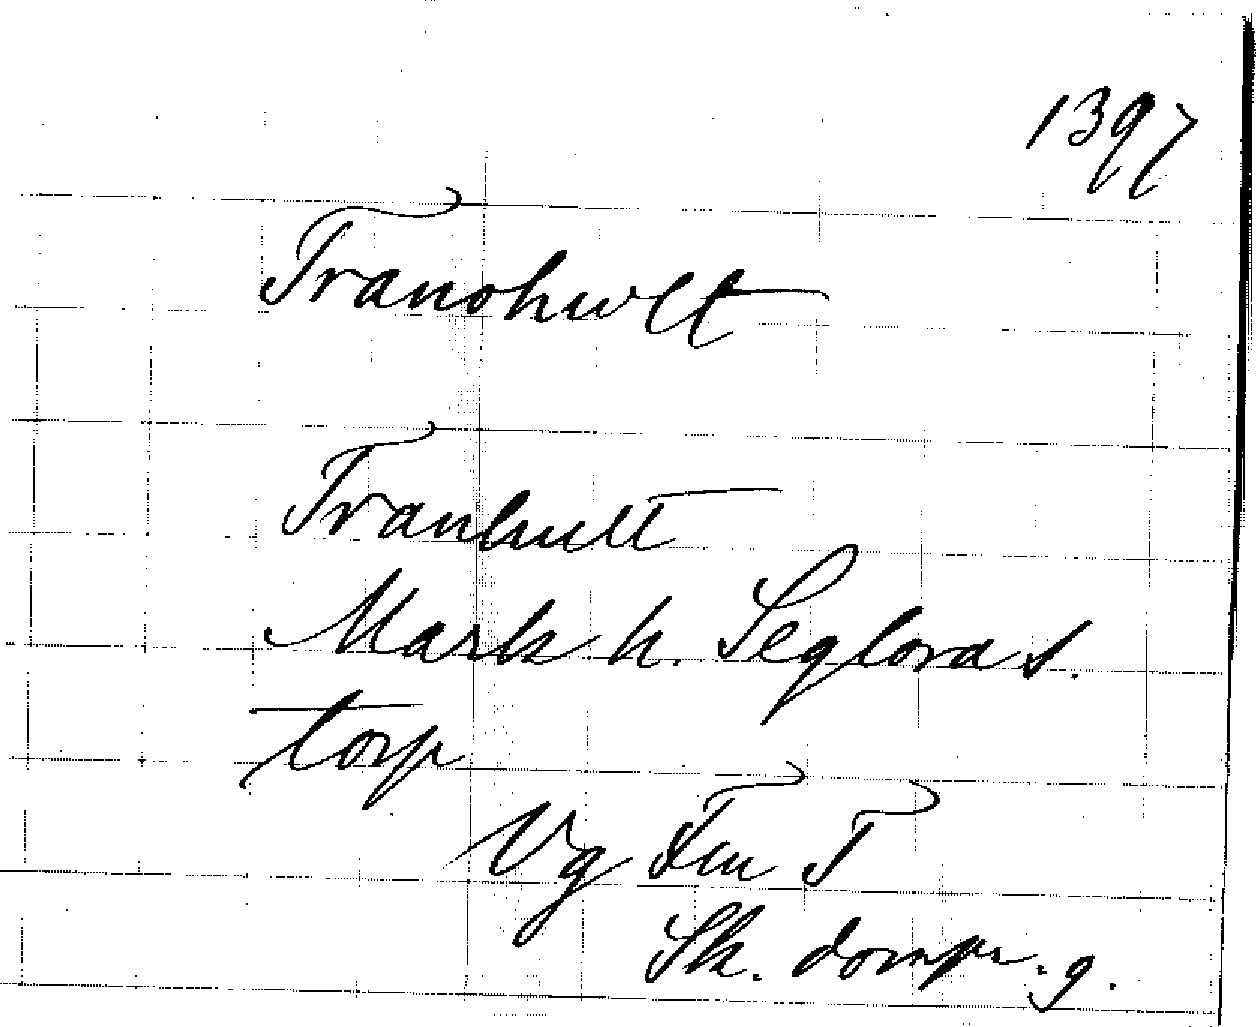 1397
Tranohwlt
Tranhult
Mark h. Seglora s.
torp
Vg Fru T
Sk. dompr. g.